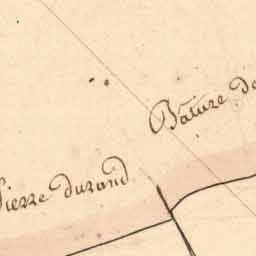 Pature de
Pierre durand